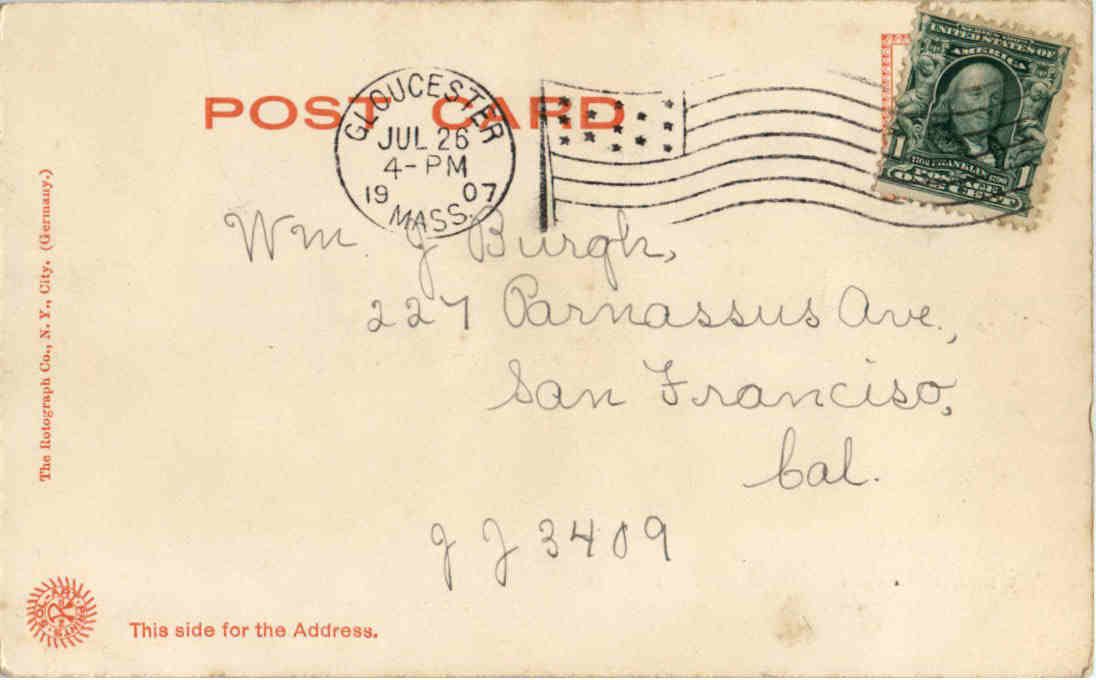 POST CARD
GLOUCESTER
JUL 26
4-PM
19 07
MASS.
UNITED STATES OF
AMERICA
1 1706 FRANKLIN 1790 1
POSTAGE
ONE CENT
Wm J Burgh,
227 Parnassus Ave.,
San Franciso,
Cal.
J J 3409
The Rotograph Co., N. Y., City. (Germany.)
SOL-ART PRINTS
This side for the Address.